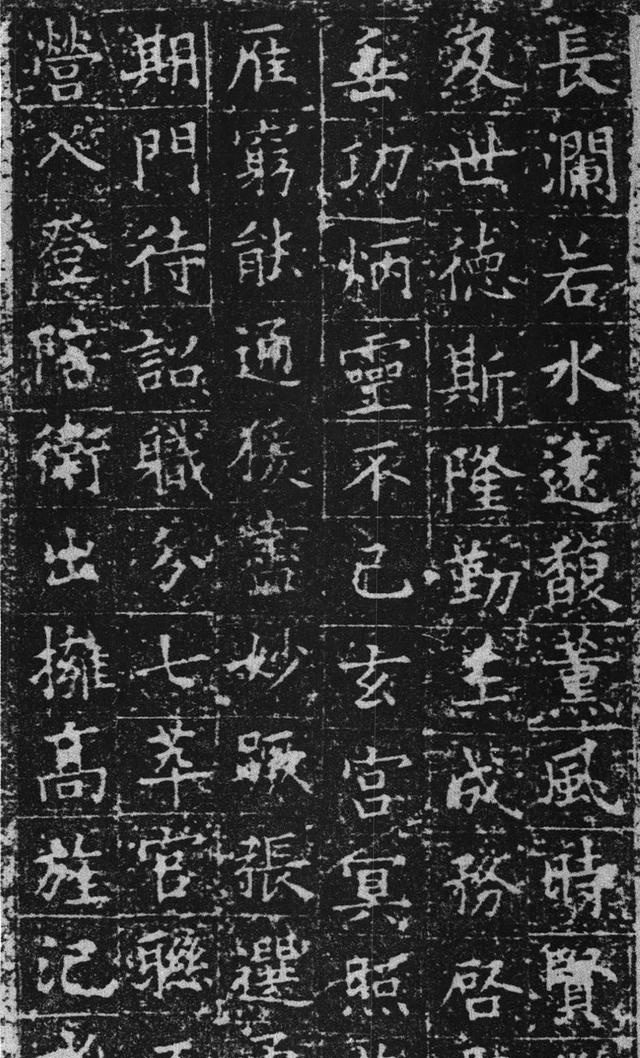 長瀾若水遠馥薰風時賢
世徳斯隆勤王成務啓
垂功炳靈不已玄宫冥照
雁窮能通猨盡妙蹶張選
期門待詔職分七萃官聯
營入登陪衛出擁高旌記